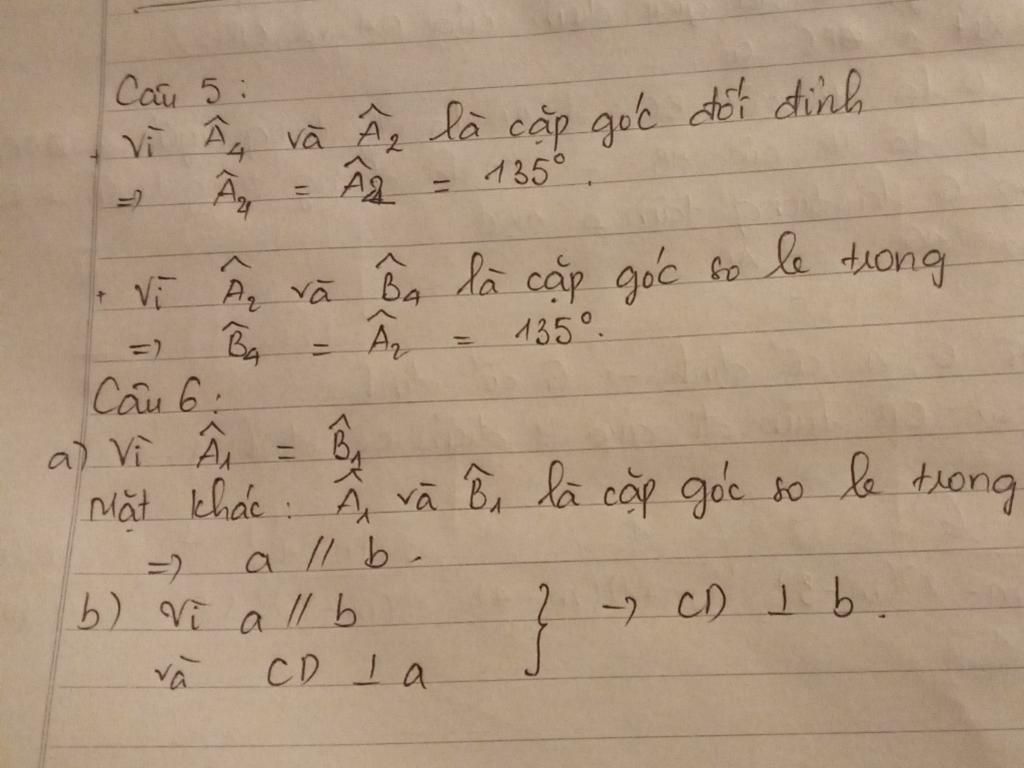 Câu 5 :
+ Vì Â₄ và Â₂ là cặp góc đối đỉnh
=> Â₄ = Â₂ = 135°.
+ Vì Â₂ và B̂₄ là cặp góc so le trong
=> B̂₄ = Â₂ = 135°.
Câu 6 :
a) Vì Â₁ = B̂₁
Mặt khác : Â₁ và B̂₁ là cặp góc so le trong
=> a // b.
b) Vì a // b } → CD ⊥ b.
và CD ⊥ a